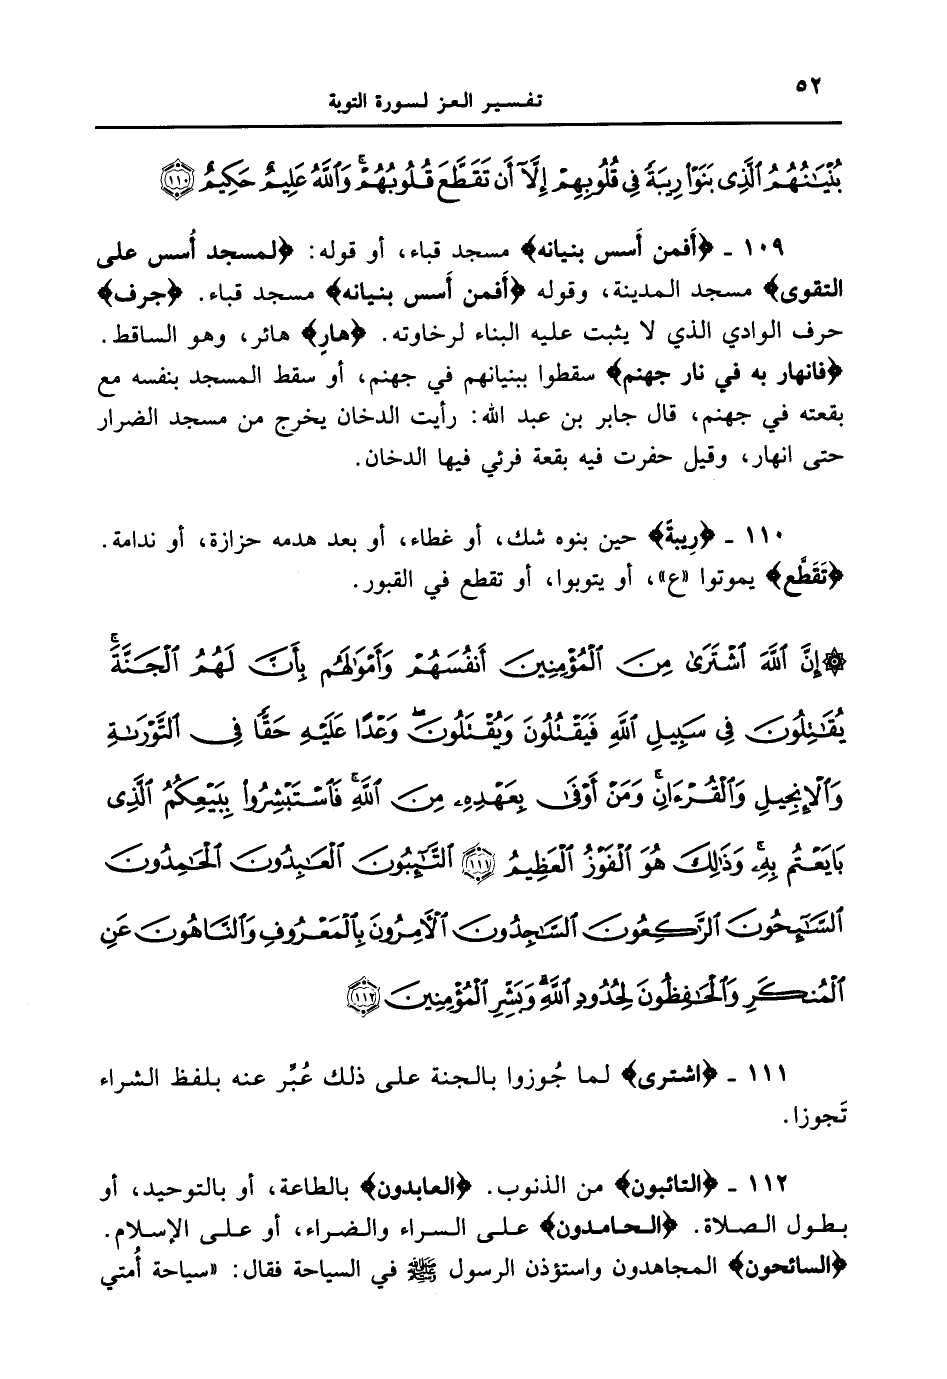 ٥٢
تفسير العز لسورة التوبة
بُنْيَٰنُهُمُ ٱلَّذِى بَنَوْا۟ رِيبَةً فِى قُلُوبِهِمْ إِلَّآ أَن تَقَطَّعَ قُلُوبُهُمْ ۗ وَٱللَّهُ عَلِيمٌ حَكِيمٌ ١١٠
١٠٩ ـ ﴿أفمن أَسس بنيانه﴾ مسجد قباء، أو قوله: ﴿لمسجد أُسس على
التقوى﴾ مسجد المدينة، وقوله ﴿أَفمن أَسس بنيانه﴾ مسجد قباء. ﴿جرف﴾
حرف الوادي الذي لا يثبت عليه البناء لرخاوته. ﴿هارٍ﴾ هائر، وهو الساقط.
﴿فانهار به في نار جهنم﴾ سقطوا ببنيانهم في جهنم، أو سقط المسجد بنفسه مع
بقعته في جهنم، قال جابر بن عبد الله: رأيت الدخان يخرج من مسجد الضرار
حتى انهار، وقيل حفرت فيه بقعة فرئي فيها الدخان.
١١٠ ـ ﴿رِيبةً﴾ حين بنوه شك، أو غطاء، أو بعد هدمه حزازة، أو ندامة.
﴿تَقَطَّع﴾ يموتوا «ع»، أو يتوبوا، أو تقطع في القبور.
۞ إِنَّ ٱللَّهَ ٱشْتَرَىٰ مِنَ ٱلْمُؤْمِنِينَ أَنفُسَهُمْ وَأَمْوَٰلَهُم بِأَنَّ لَهُمُ ٱلْجَنَّةَ ۚ
يُقَٰتِلُونَ فِى سَبِيلِ ٱللَّهِ فَيَقْتُلُونَ وَيُقْتَلُونَ ۖ وَعْدًا عَلَيْهِ حَقًّا فِى ٱلتَّوْرَىٰةِ
وَٱلْإِنجِيلِ وَٱلْقُرْءَانِ ۚ وَمَنْ أَوْفَىٰ بِعَهْدِهِۦ مِنَ ٱللَّهِ ۚ فَٱسْتَبْشِرُوا۟ بِبَيْعِكُمُ ٱلَّذِى
بَايَعْتُم بِهِۦ ۚ وَذَٰلِكَ هُوَ ٱلْفَوْزُ ٱلْعَظِيمُ ١١١ ٱلتَّٰٓئِبُونَ ٱلْعَٰبِدُونَ ٱلْحَٰمِدُونَ
ٱلسَّٰٓئِحُونَ ٱلرَّٰكِعُونَ ٱلسَّٰجِدُونَ ٱلْءَامِرُونَ بِٱلْمَعْرُوفِ وَٱلنَّاهُونَ عَنِ
ٱلْمُنكَرِ وَٱلْحَٰفِظُونَ لِحُدُودِ ٱللَّهِ ۗ وَبَشِّرِ ٱلْمُؤْمِنِينَ ١١٢
١١١ ـ ﴿اشترى﴾ لما جُوزوا بالجنة على ذلك عُبِّر عنه بلفظ الشراء
تَجوزا.
١١٢ ـ ﴿التائبون﴾ من الذنوب. ﴿العابدون﴾ بالطاعة، أو بالتوحيد، أو
بطول الصلاة. ﴿الحامدون﴾ على السراء والضراء، أو على الإسلام.
﴿السائحون﴾ المجاهدون واستؤذن الرسول ﷺ في السياحة فقال: «سياحة أُمتي